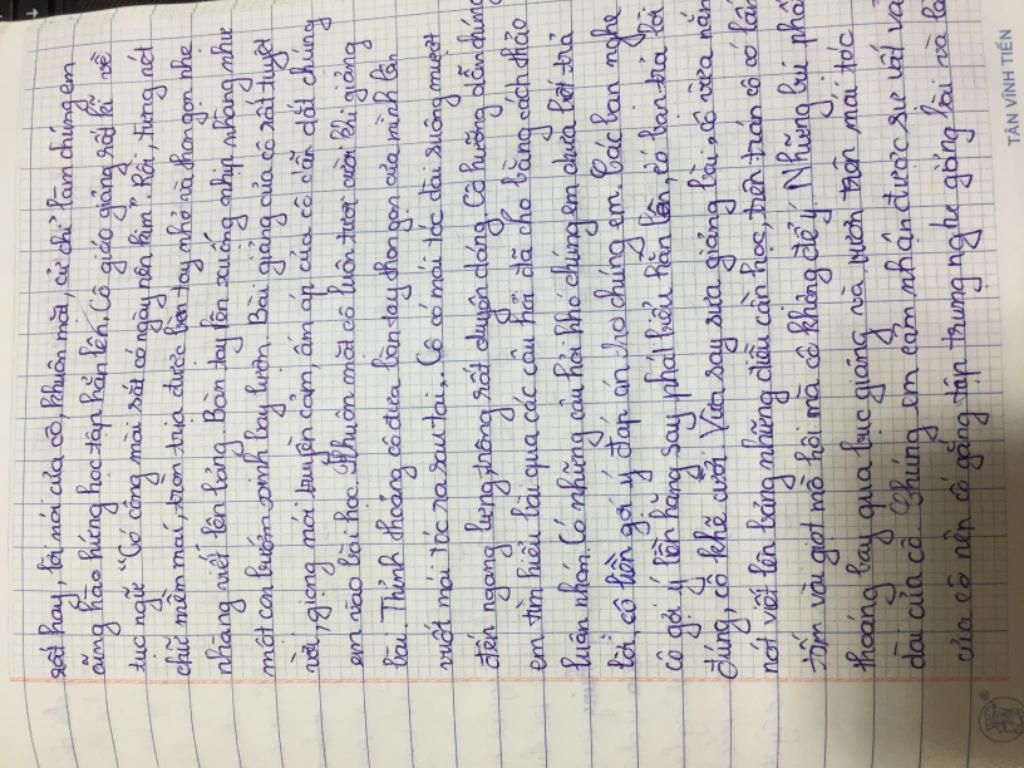 rất hay, lời nói của cô, khuôn mặt, cử chỉ làm chúng em
càng hào hứng học tập hẳn lên. Cô giáo giảng rất kĩ về
tục ngữ "Có công mài sắt có ngày nên kim". Rồi, từng nét
chữ mềm mại, tròn trịa được bàn tay nhỏ và thon gọn nhẹ
nhàng viết lên bảng. Bàn tay lên xuống nhịp nhàng như
một con bướm xinh bay lượn. Bài giảng của cô rất tuyệt
vời, giọng nói truyền cảm, ấm áp của cô dẫn dắt chúng
em vào bài học. Khuôn mặt cô luôn tươi cười khi giảng
bài. Thỉnh thoảng cô đưa bàn tay thon gọn của mình lên
vuốt mái tóc ra sau tai. Cô có mái tóc dài suông mượt
đến ngang lưng, trông rất duyên dáng. Cô hướng dẫn chúng
em tìm hiểu bài qua các câu hỏi đã cho bằng cách thảo
luận nhóm. Có những câu hỏi khó chúng em chưa biết trả
lời, cô liền gợi ý đáp án cho chúng em. Các bạn nghe
cô gợi ý liền hăng say phát biểu hẳn lên, có bạn trả lời
đúng, cô khẽ cười. Vừa say sưa giảng bài, cô vừa nắn
nót viết lên bảng những điều cần học, trên trán cô có lấm
tấm vài giọt mồ hôi mà cô không để ý. Những bụi phấn
thoáng bay qua bục giảng và vươn trên mái tóc
dài của cô. Chúng em cảm nhận được sự vất vả
của cô nên cố gắng tập trung nghe giảng bài và
TÂN VĨNH TIẾN